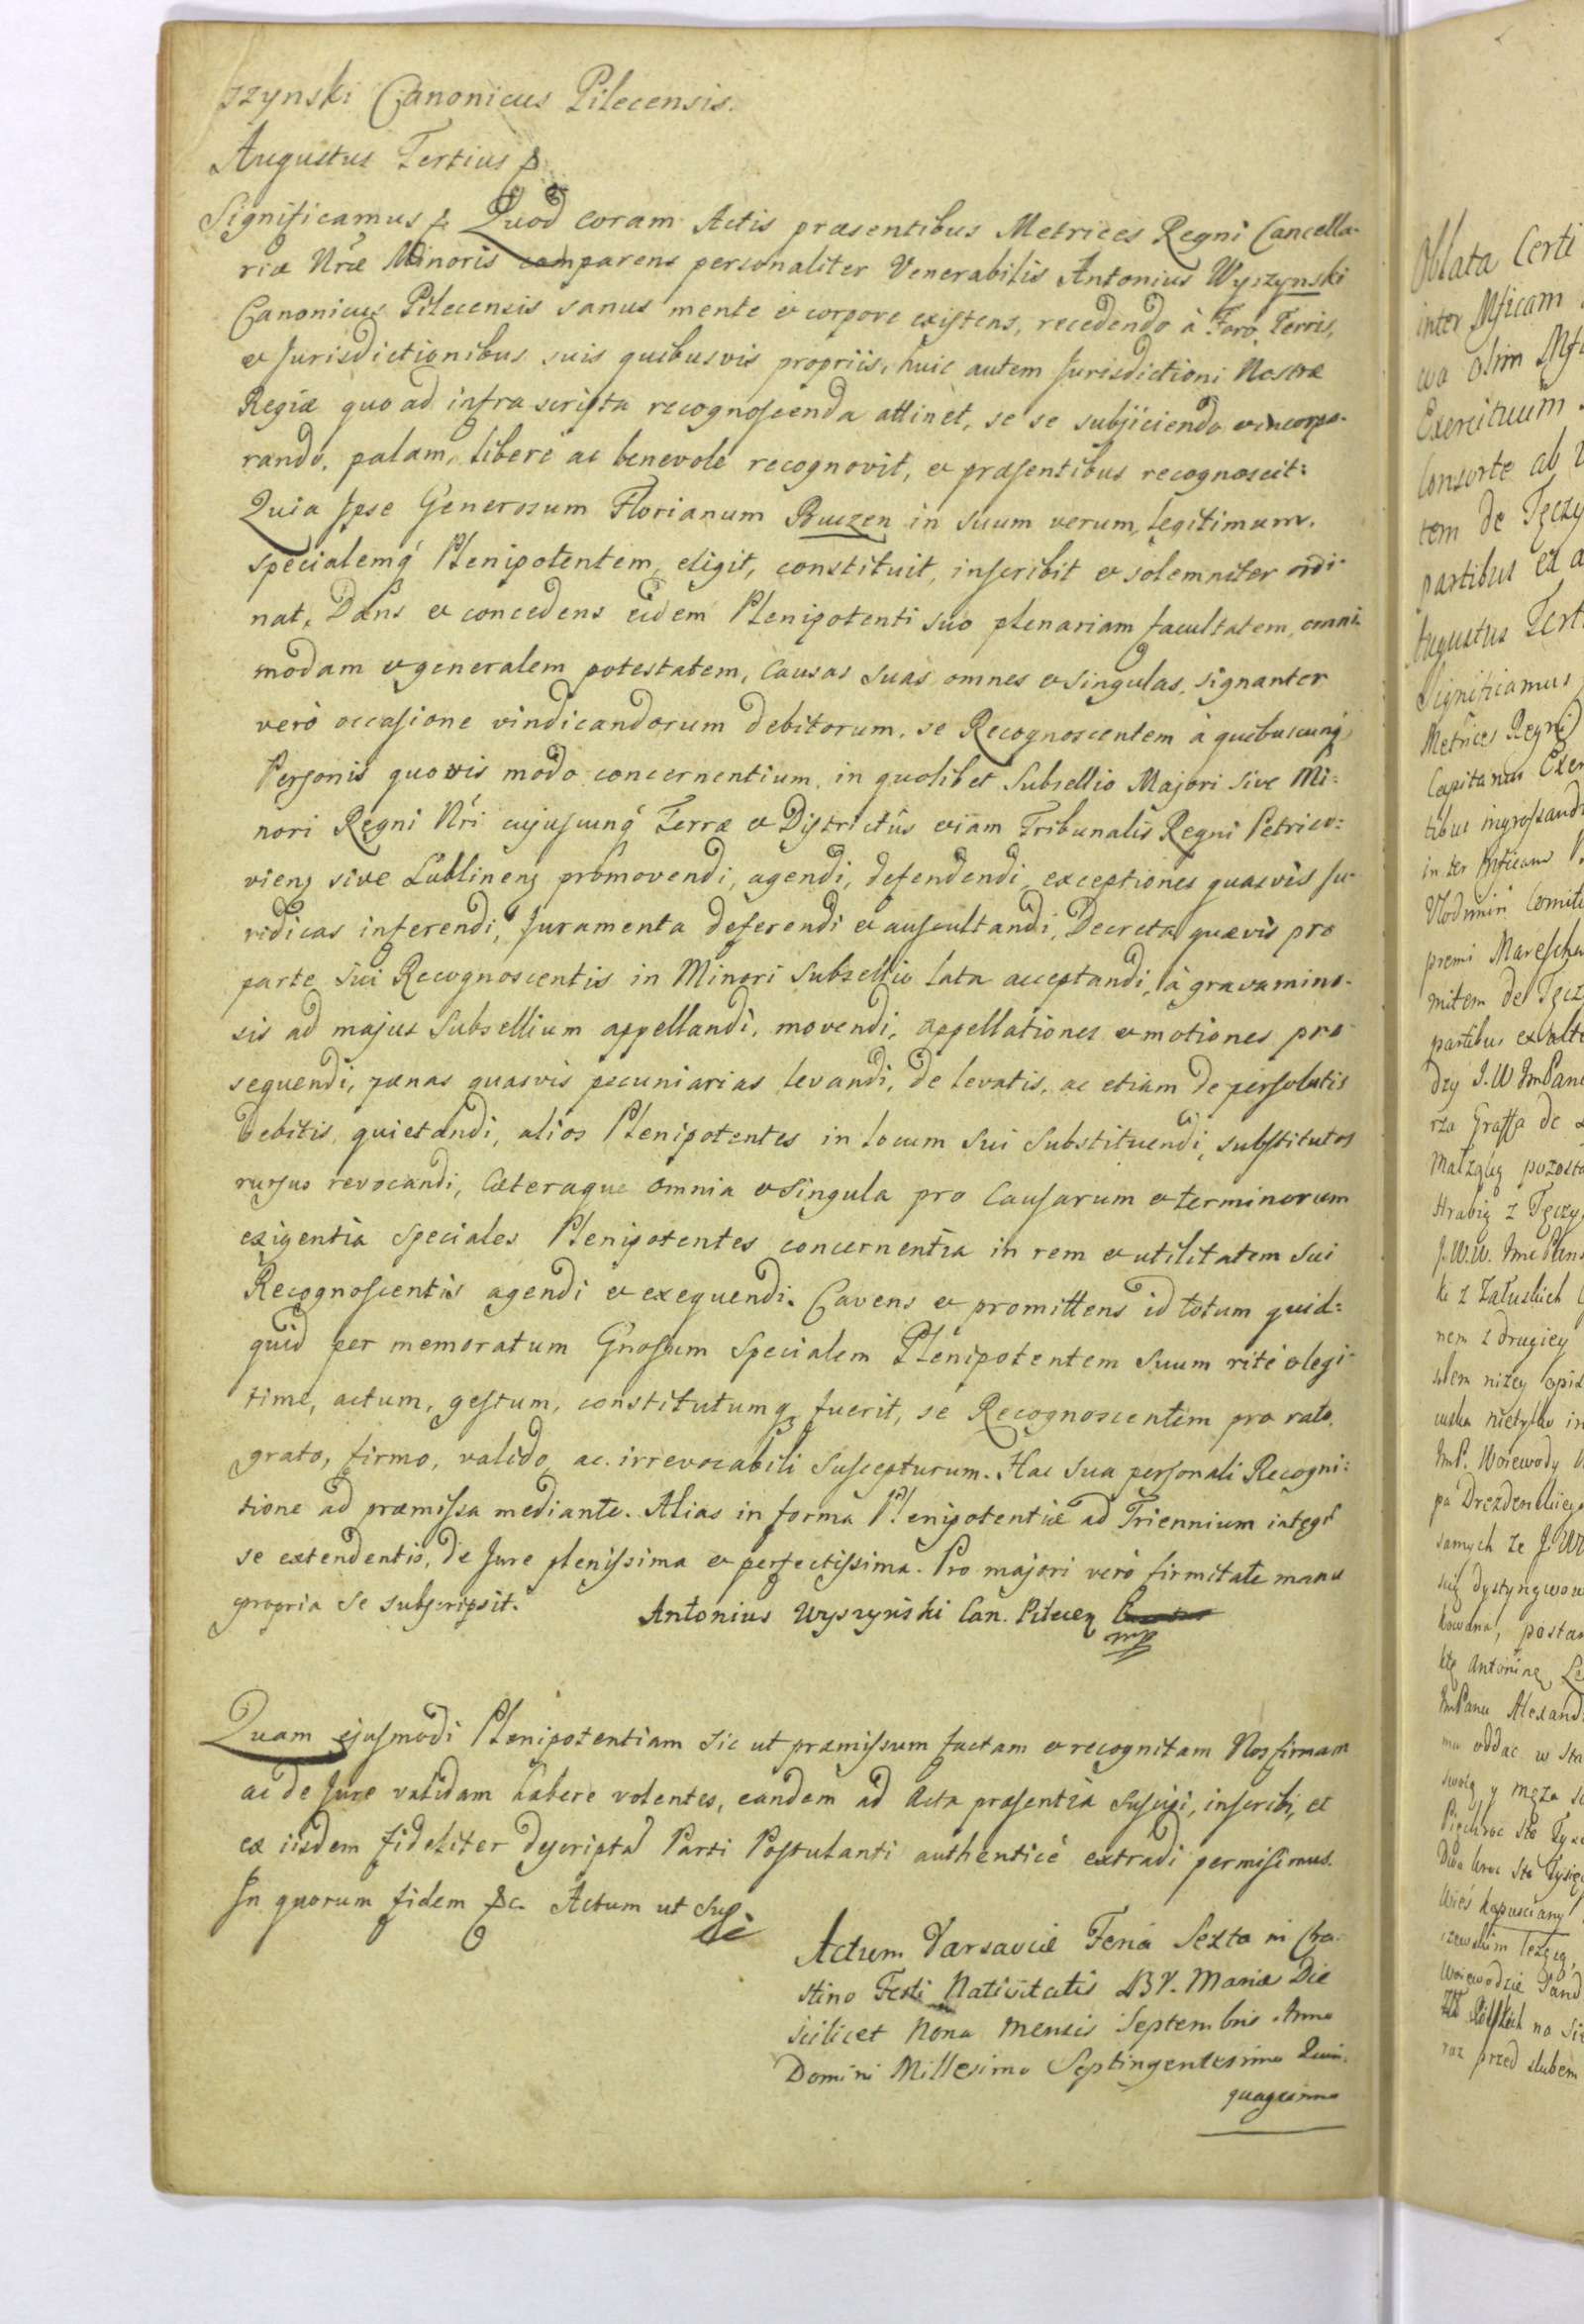 szynski Canonicus Pilecensis.
Augustus Tertius &
Significamus & Quod coram Actis præsentibus Metrices Regni Cancella-
riæ Nræ Minoris comparens personaliter Venerabilis Antonius Wyszynski
Canonicus Pilecensis sanus mente & corpore existens, recedendo à Foro, Terris,
& Jurisdictionibus suis quibusvis propriis, huic autem Jurisdictioni Nostræ
Regiæ quo ad infra scripta recognoscenda attinet, se se subjiciendo & incorpo-
rando, palam, liberè ac benevole recognovit, & præsentibus recognoscit:
Quia Ipse Generosum Florianum Buczen in suum verum, legitimum,
specialemq́ Plenipotentem, eligit, constituit, inscribit & solemniter ordi-
nat, Dans & concedens eidem Plenipotenti suo plenariam facultatem, omni-
modam & generalem potestatem, Causas suas omnes & singulas, signanter
verò occasione vindicandorum debitorum, se Recognoscentem à quibuscunq́
Personis quovis modo concernentium, in quolibet Subsellio Majori sive Mi:
nori Regni Nri cujuscunq́ Terræ & Districtûs etiam Tribunalis Regni Petrico:
viens sive Lublinens promovendi, agendi, defendendi, exceptiones quasvis Ju-
ridicas inferendi, Juramenta deferendi & auscultandi, Decreta quævis pro
parte sui Recognoscentis in Minori Subsellio lata acceptandi, à gravamino-
sis ad majus Subsellium appellandi, movendi, appellationes & motiones pro-
sequendi, pænas quasvis pecuniarias levandi, de levatis, ac etiam de persolutis
Debitis, quietandi, alios Plenipotentes in locum sui substituendi, substitutos
rursus revocandi, Cæteraque omnia & singula pro Causarum & terminorum
exigentia speciales Plenipotentes concernentia in rem & utilitatem sui
Recognoscentis agendi & exequendi. Cavens & promittens id totum quid:
quid per memoratum Gnosum Specialem Plenipotentem suum ritè & legi-
time, actum, gestum, constitutumq fuerit, se Recognoscentem pro rato,
grato, firmo, valido, ac irrevocabili suscepturum. Hac sua personali Recogni:
tione ad præmissa mediante. Alias in forma Plenipotentiæ ad Triennium integr
se extendentis, de Jure plenissima & perfectissima. Pro majori verò firmitate manu
propria se subscripsit. Antonius Wyszyński Can. Pilecen
mp
Quam ejusmodi Plenipotentiam sic ut præmissum factam & recognitam Nos firmam
ac de Jure validam habere volentes, eandem ad Acta præsentia suscipi, inscribi, et
ex iisdem fideliter descriptã Parti Postulanti authenticè extradi permisimus.
In quorum fidem &c. Actum ut Sup̃
Actum Varsaviæ Feria Sexta in Cra-
stino Festi Nativitatis B.V. Mariæ Die
scilicet Nona Mensis Septembris Anno
Domini Millesimo Septingentesimo Quin-
quagesimo
Oblata Certi
inter Mficam
wa olim Mf
Exercituum
Consorte ab
tem de Tęczy
partibus ex a
Augustus Tert
Significamus
Metrices Regni
Capitanus Exer
tibus ingrossand
inter Mficam
Vlodimiri Comit
premi Maresch
mitem de Tęcz
partibus ex alt
dzy J. W ImPane
rza Graffa de
Małząką pozosta
Hrabią z Tęczy
J.W.W. Imć Pan
ki z Załuskich
nem z drugiey
słem niżey opis
wska nietylko in
ImP. Woiewody
pa Drezdenskiego
samych ze J.W
się dystyngwow
kowana, postan
kę Antoninę
ImPanu Alexand
mu oddać w sta
swoię y męża s
Pięckroc sto Tys
Dwakroc sto Tysię
Wieś Kapusciany
czewskim leżącą,
Woiewodzie Sand
na się
raz przed slubem